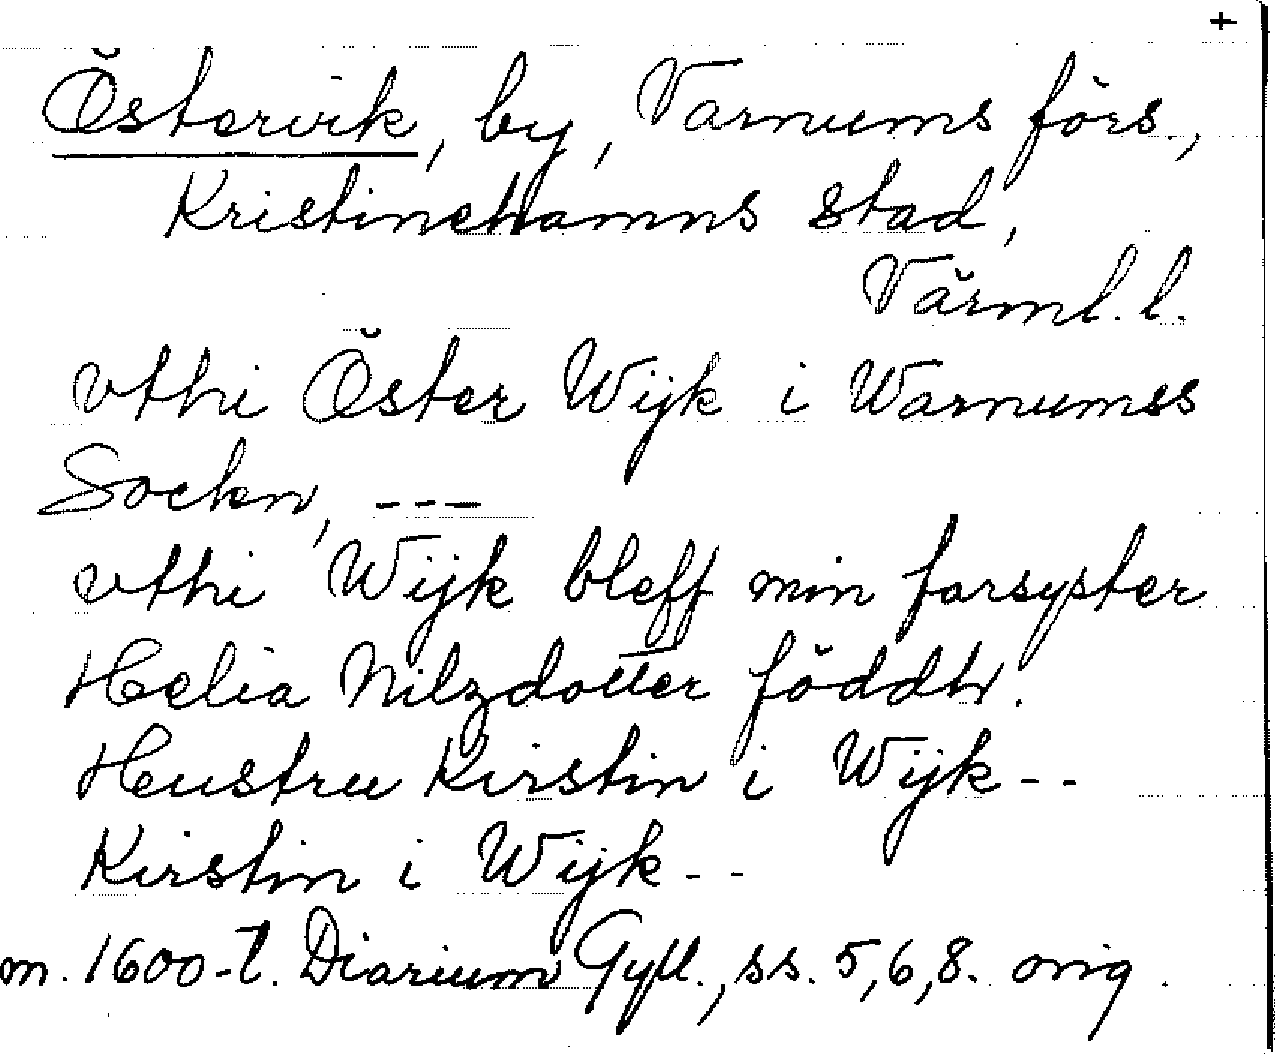 +
Östervik, by, Varnums förs.,
Kristinehamns stad,
Värml. l.
vthi Öster Wijk i Warnumss
Sockn, ---
vthi Wijk bleff min farsyster
Helia Nilzdotter föddh.
Hustru Kirstin i Wijk --
Kirstin i Wijk --
m. 1600-t. Diarium Gyll., ss. 5,6,8. orig.